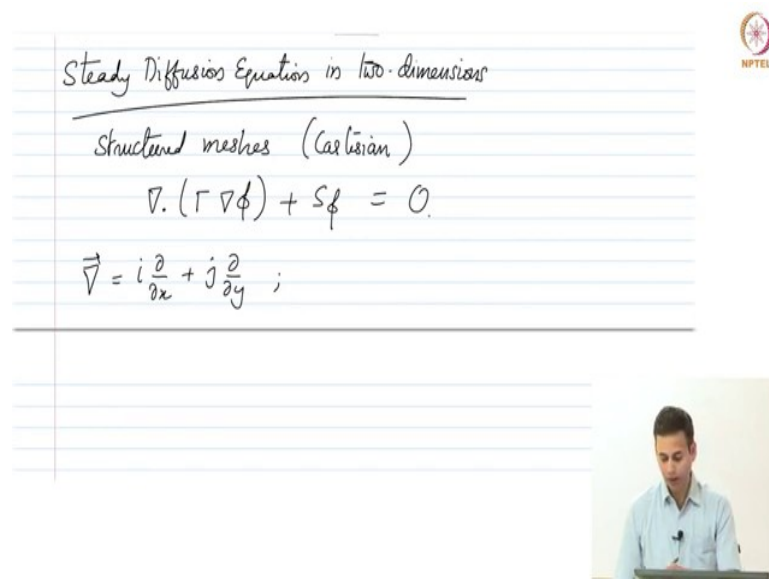 Steady Diffusion Equation in two-dimensions
NPTEL
Structured meshes (Cartesian)
∇. (Γ ∇ϕ) + Sϕ = 0.
∇⃗ = i ∂/∂x + j ∂/∂y ;